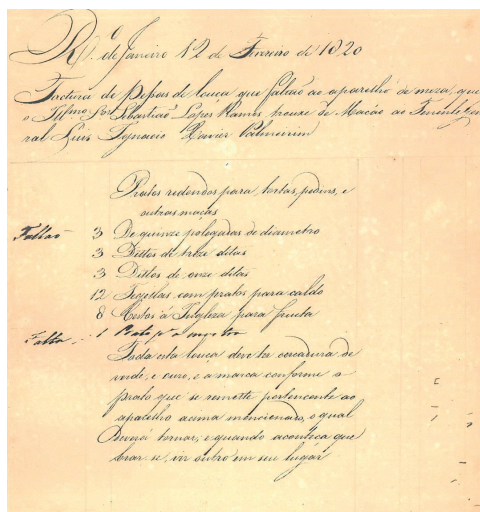 Rº. de Janeiro 12 de Fevereiro de 1820
Factura de Pessas de louca que faltaõ ao aparelho de meza, que
o Illmo. Snr. Sebastiaõ Lopes Ramos trouxe de Macáo ao Tenente Gene
ral Luis Ignacio Xavier Palmeirim
Pratos redondos para tortas, podins, e
outras maças
Faltaõ 3 De quinze polegadas de diametro
3 Dittos de treze ditas
3 Dittos de onze ditas
12 Tegellas com pratos para caldo
8 Cestos á Ingleza para fructa
Falta 1 Prato pª amostra
Toda esta louça deve ter cercadura de
verde, e ouro, e a marca conforme o
prato que se remette pertencente ao
aparelho acima mencionado, o qual
deverá tornar, e quando aconteça que
brar-se, vir outro em seu lugar